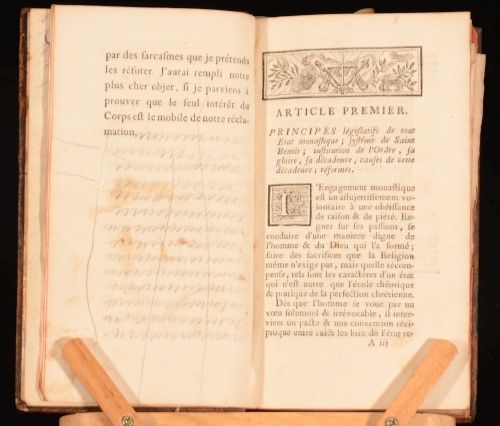 par des sarcasmes que je prétends
les réfuter. J'aurai rempli notre
plus cher objet, si je parviens à
prouver que le seul intérêt du
Corps est le mobile de notre récla-
mation.
ARTICLE PREMIER.
PRINCIPES législatifs de tout
Etat monastique ; système de Saint
Benoît ; institution de l'Ordre, sa
gloire, sa décadence, causes de cette
décadence ; réformes.
L'Engagement monastique
est un assujettissement vo-
lontaire à une obéissance
de raison & de piété. Re-
gner sur ses passions, se
conduire d'une manière digne de
l'homme & du Dieu qui l'a formé ;
faire des sacrifices que la Religion
même n'exige pas, mais quelle récom-
pense, tels sont les caractères d'un état
qui n'est autre que l'école théorique
& pratique de la perfection chrétienne.
Dès que l'homme se voue par un
vœu solemnel & irrévocable, il inter-
vient un pacte & une convention réci-
proque entre lui & les loix de l'état re-
A iij